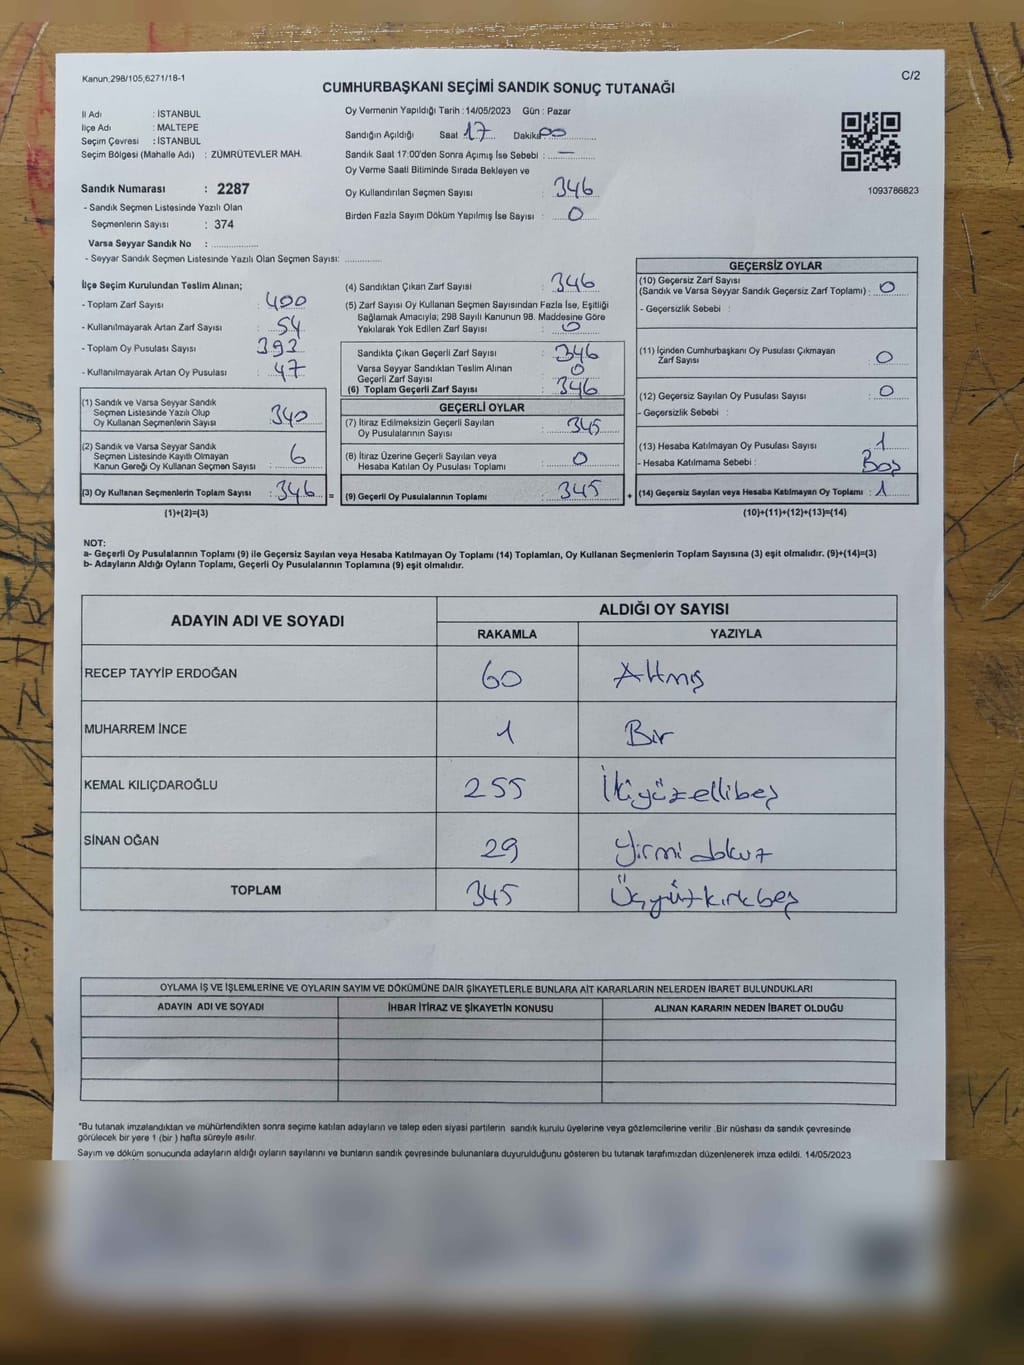 Kanun;298/105,6271/18-1
C/2
CUMHURBAŞKANI SEÇİMİ SANDIK SONUÇ TUTANAĞI
İl Adı : İSTANBUL
İlçe Adı : MALTEPE
Seçim Çevresi : İSTANBUL
Seçim Bölgesi (Mahalle Adı) : ZÜMRÜTEVLER MAH.
Sandık Numarası : 2287
- Sandık Seçmen Listesinde Yazılı Olan
Seçmenlerin Sayısı : 374
Varsa Seyyar Sandık No : ..............
- Seyyar Sandık Seçmen Listesinde Yazılı Olan Seçmen Sayısı: ............
Oy Vermenin Yapıldığı Tarih : 14/05/2023 Gün : Pazar
Sandığın Açıldığı Saat 17 Dakika 00
Sandık Saat 17:00'den Sonra Açımış İse Sebebi : —
Oy Verme Saati Bitiminde Sırada Bekleyen ve
Oy Kullandırılan Seçmen Sayısı : 346
Birden Fazla Sayım Döküm Yapılmış İse Sayısı : 0
1093786823
İlçe Seçim Kurulundan Teslim Alınan;
- Toplam Zarf Sayısı : 400
- Kullanılmayarak Artan Zarf Sayısı : 54
- Toplam Oy Pusulası Sayısı : 393
- Kullanılmayarak Artan Oy Pusulası : 47
(1) Sandık ve Varsa Seyyar Sandık
Seçmen Listesinde Yazılı Olup
Oy Kullanan Seçmenlerin Sayısı : 340
(2) Sandık ve Varsa Seyyar Sandık
Seçmen Listesinde Kayıtlı Olmayan
Kanun Gereği Oy Kullanan Seçmen Sayısı : 6
(3) Oy Kullanan Seçmenlerin Toplam Sayısı : 346 =
(1)+(2)=(3)
(4) Sandıktan Çıkan Zarf Sayısı : 346
(5) Zarf Sayısı Oy Kullanan Seçmen Sayısından Fazla İse, Eşitliği
Sağlamak Amacıyla; 298 Sayılı Kanunun 98. Maddesine Göre
Yakılarak Yok Edilen Zarf Sayısı : 0
Sandıkta Çıkan Geçerli Zarf Sayısı : 346
Varsa Seyyar Sandıktan Teslim Alınan
Geçerli Zarf Sayısı : 0
(6) Toplam Geçerli Zarf Sayısı : 346
GEÇERLİ OYLAR
(7) İtiraz Edilmeksizin Geçerli Sayılan
Oy Pusulalarının Sayısı : 345
(8) İtiraz Üzerine Geçerli Sayılan veya
Hesaba Katılan Oy Pusulası Toplamı : 0
(9) Geçerli Oy Pusulalarının Toplamı : 345 +
GEÇERSİZ OYLAR
(10) Geçersiz Zarf Sayısı
(Sandık ve Varsa Seyyar Sandık Geçersiz Zarf Toplamı) : 0
- Geçersizlik Sebebi :
(11) İçinden Cumhurbaşkanı Oy Pusulası Çıkmayan
Zarf Sayısı : 0
(12) Geçersiz Sayılan Oy Pusulası Sayısı : 0
- Geçersizlik Sebebi :
(13) Hesaba Katılmayan Oy Pusulası Sayısı : 1
- Hesaba Katılmama Sebebi : Boş
(14) Geçersiz Sayılan veya Hesaba Katılmayan Oy Toplamı : 1
(10)+(11)+(12)+(13)=(14)
NOT:
a- Geçerli Oy Pusulalarının Toplamı (9) ile Geçersiz Sayılan veya Hesaba Katılmayan Oy Toplamı (14) Toplamları, Oy Kullanan Seçmenlerin Toplam Sayısına (3) eşit olmalıdır. (9)+(14)=(3)
b- Adayların Aldığı Oyların Toplamı, Geçerli Oy Pusulalarının Toplamına (9) eşit olmalıdır.
ADAYIN ADI VE SOYADI ALDIĞI OY SAYISI
RAKAMLA YAZIYLA
RECEP TAYYİP ERDOĞAN 60 Altmış
MUHARREM İNCE 1 Bir
KEMAL KILIÇDAROĞLU 255 İkiyüzellibeş
SİNAN OĞAN 29 Yirmi dokuz
TOPLAM 345 Üçyüzkırkbeş
OYLAMA İŞ VE İŞLEMLERİNE VE OYLARIN SAYIM VE DÖKÜMÜNE DAİR ŞİKAYETLERLE BUNLARA AİT KARARLARIN NELERDEN İBARET BULUNDUKLARI
ADAYIN ADI VE SOYADI İHBAR İTİRAZ VE ŞİKAYETİN KONUSU ALINAN KARARIN NEDEN İBARET OLDUĞU
*Bu tutanak imzalandıktan ve mühürlendikten sonra seçime katılan adayların ve talep eden siyasi partilerin sandık kurulu üyelerine veya gözlemcilerine verilir .Bir nüshası da sandık çevresinde
görülecek bir yere 1 (bir ) hafta süreyle asılır.
Sayım ve döküm sonucunda adayların aldığı oyların sayılarını ve bunların sandık çevresinde bulunanlara duyurulduğunu gösteren bu tutanak tarafımızdan düzenlenerek imza edildi. 14/05/2023